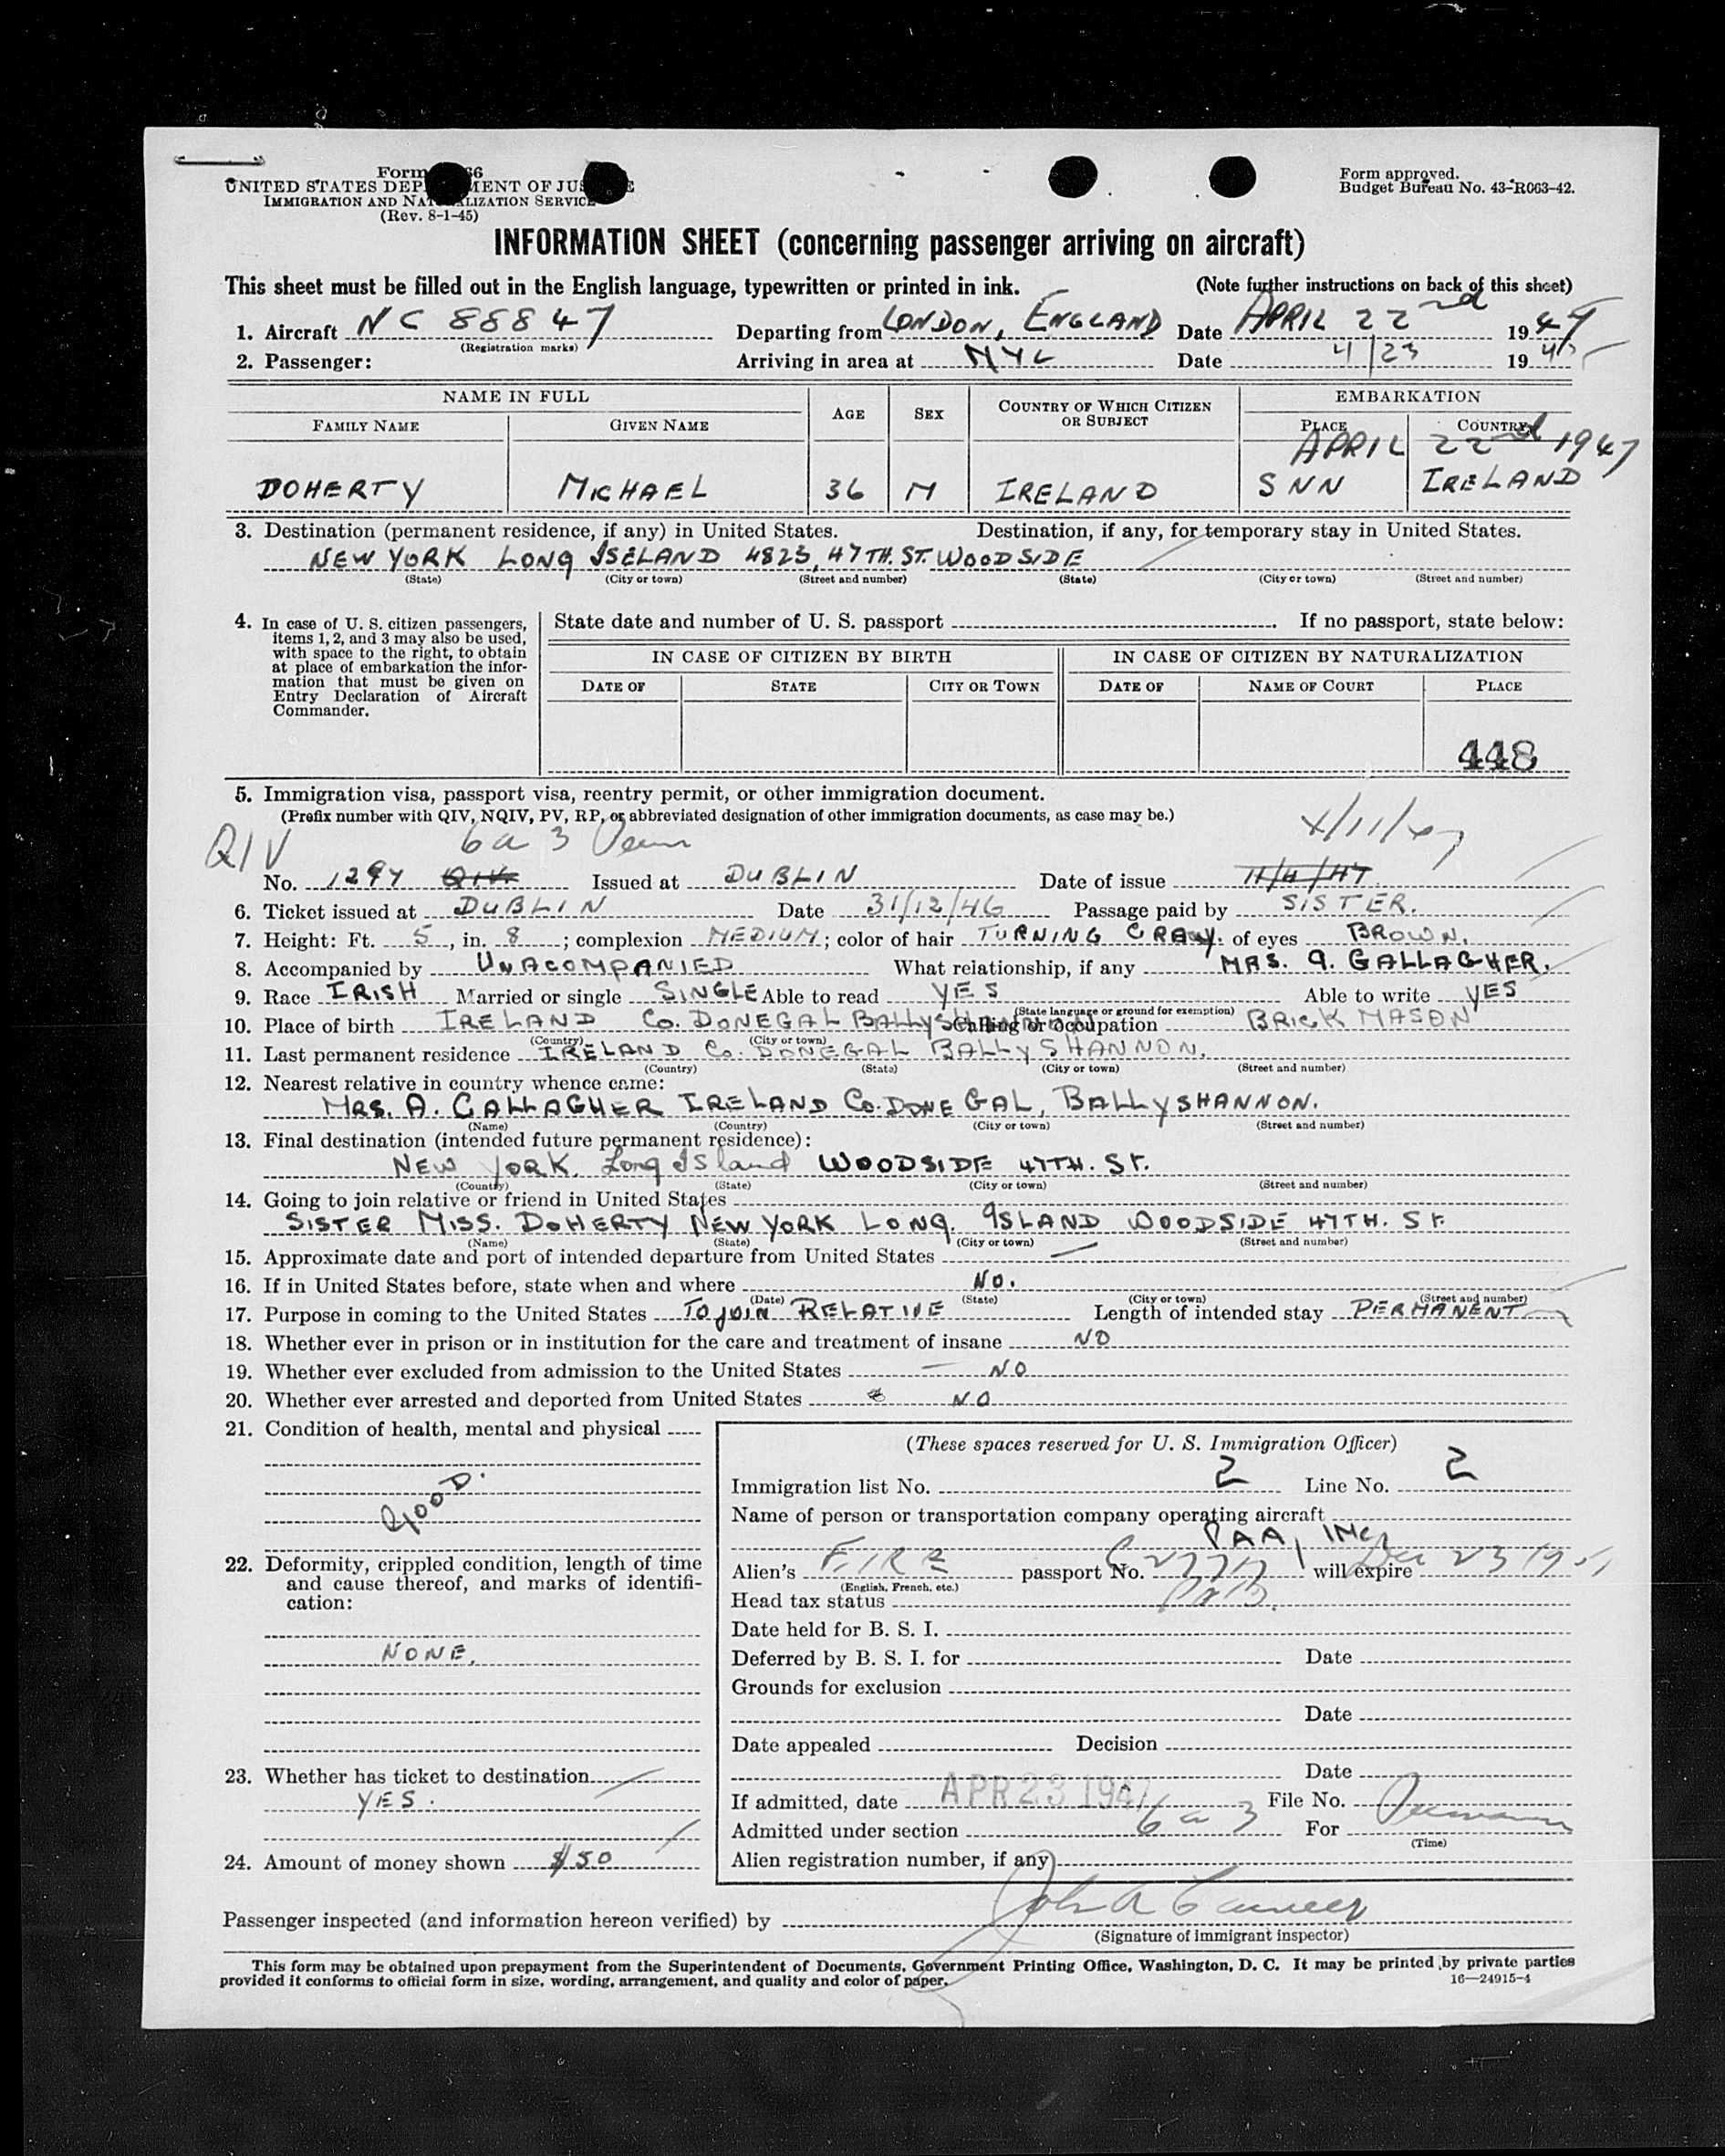 Form 66
UNITED STATES DEP MENT OF JUS E
IMMIGRATION AND NAT LIZATION SERVICE
(Rev. 8-1-45)
Form approved.
Budget Bureau No. 43-R063-42.
INFORMATION SHEET (concerning passenger arriving on aircraft)
This sheet must be filled out in the English language, typewritten or printed in ink. (Note further instructions on back of this sheet)
1. Aircraft NC 88847 Departing from LONDON, ENGLAND Date APRIL 22nd 1947
(Registration marks)
2. Passenger: Arriving in area at NYC Date 4/23 19 47
NAME IN FULL AGE SEX COUNTRY OF WHICH CITIZEN OR SUBJECT EMBARKATION
FAMILY NAME GIVEN NAME PLACE COUNTRY
APRIL 22nd 1947
DOHERTY MICHAEL 36 M IRELAND SNN IRELAND
3. Destination (permanent residence, if any) in United States. Destination, if any, for temporary stay in United States.
NEW YORK LONG ISELAND 4823, 47TH. ST. WOODSIDE
(State) (City or town) (Street and number) (State) (City or town) (Street and number)
4. In case of U. S. citizen passengers, items 1, 2, and 3 may also be used, with space to the right, to obtain at place of embarkation the information that must be given on Entry Declaration of Aircraft Commander.
State date and number of U. S. passport . If no passport, state below:
IN CASE OF CITIZEN BY BIRTH IN CASE OF CITIZEN BY NATURALIZATION
DATE OF STATE CITY OR TOWN DATE OF NAME OF COURT PLACE
448
5. Immigration visa, passport visa, reentry permit, or other immigration document.
(Prefix number with QIV, NQIV, PV, RP, or abbreviated designation of other immigration documents, as case may be.)
QIV 6a 3 Perm 4/11/47
No. 1297 QIV Issued at DUBLIN Date of issue 11/4/47
6. Ticket issued at DUBLIN Date 31/12/46 Passage paid by SISTER.
7. Height: Ft. 5, in. 8; complexion MEDIUM; color of hair TURNING GRAY. of eyes BROWN.
8. Accompanied by UNACOMPANIED What relationship, if any MRS. A. GALLAGHER.
9. Race IRISH Married or single SINGLE Able to read YES Able to write YES
(State language or ground for exemption)
10. Place of birth IRELAND CO. DONEGAL BALLYSHANNON Calling or occupation BRICK MASON
(Country) (City or town)
11. Last permanent residence IRELAND Co. DONEGAL BALLYSHANNON.
(Country) (State) (City or town) (Street and number)
12. Nearest relative in country whence came:
MRS. A. GALLAGHER IRELAND Co. DONEGAL, BALLYSHANNON.
(Name) (Country) (City or town) (Street and number)
13. Final destination (intended future permanent residence):
NEW YORK. Long Island WOODSIDE 47TH. ST.
(Country) (State) (City or town) (Street and number)
14. Going to join relative or friend in United States
SISTER MISS. DOHERTY NEW YORK LONG. ISLAND WOODSIDE 47TH. ST.
(Name) (State) (City or town) (Street and number)
15. Approximate date and port of intended departure from United States
16. If in United States before, state when and where NO.
(Date) (State) (City or town) (Street and number)
17. Purpose in coming to the United States TO JOIN RELATIVE Length of intended stay PERMANENT
18. Whether ever in prison or in institution for the care and treatment of insane NO
19. Whether ever excluded from admission to the United States — NO
20. Whether ever arrested and deported from United States NO
21. Condition of health, mental and physical
GOOD.
22. Deformity, crippled condition, length of time and cause thereof, and marks of identification:
NONE.
23. Whether has ticket to destination
YES.
24. Amount of money shown $50
(These spaces reserved for U. S. Immigration Officer)
Immigration list No. 2 Line No. 2
Name of person or transportation company operating aircraft
PAA, INC,
Alien's EIRE passport No. will expire Dec 23 1951
(English, French, etc.)
Head tax status
Date held for B. S. I.
Deferred by B. S. I. for Date
Grounds for exclusion
Date
Date appealed Decision
Date
If admitted, date APR 23 1947 File No.
Admitted under section 6 a 3 For
(Time)
Alien registration number, if any
Passenger inspected (and information hereon verified) by
(Signature of immigrant inspector)
This form may be obtained upon prepayment from the Superintendent of Documents, Government Printing Office, Washington, D. C. It may be printed by private parties
provided it conforms to official form in size, wording, arrangement, and quality and color of paper.
16—24915-4